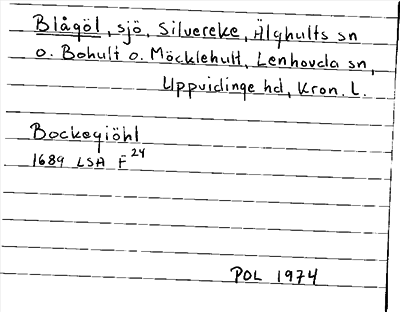 Blågöl, sjö, Silvereke, Älghults sn
o. Bohult o. Möcklehult, Lenhovda sn,
Uppvidinge hd, Kron. L.
Bockegiöhl
1689 LSA F 24
POL 1974